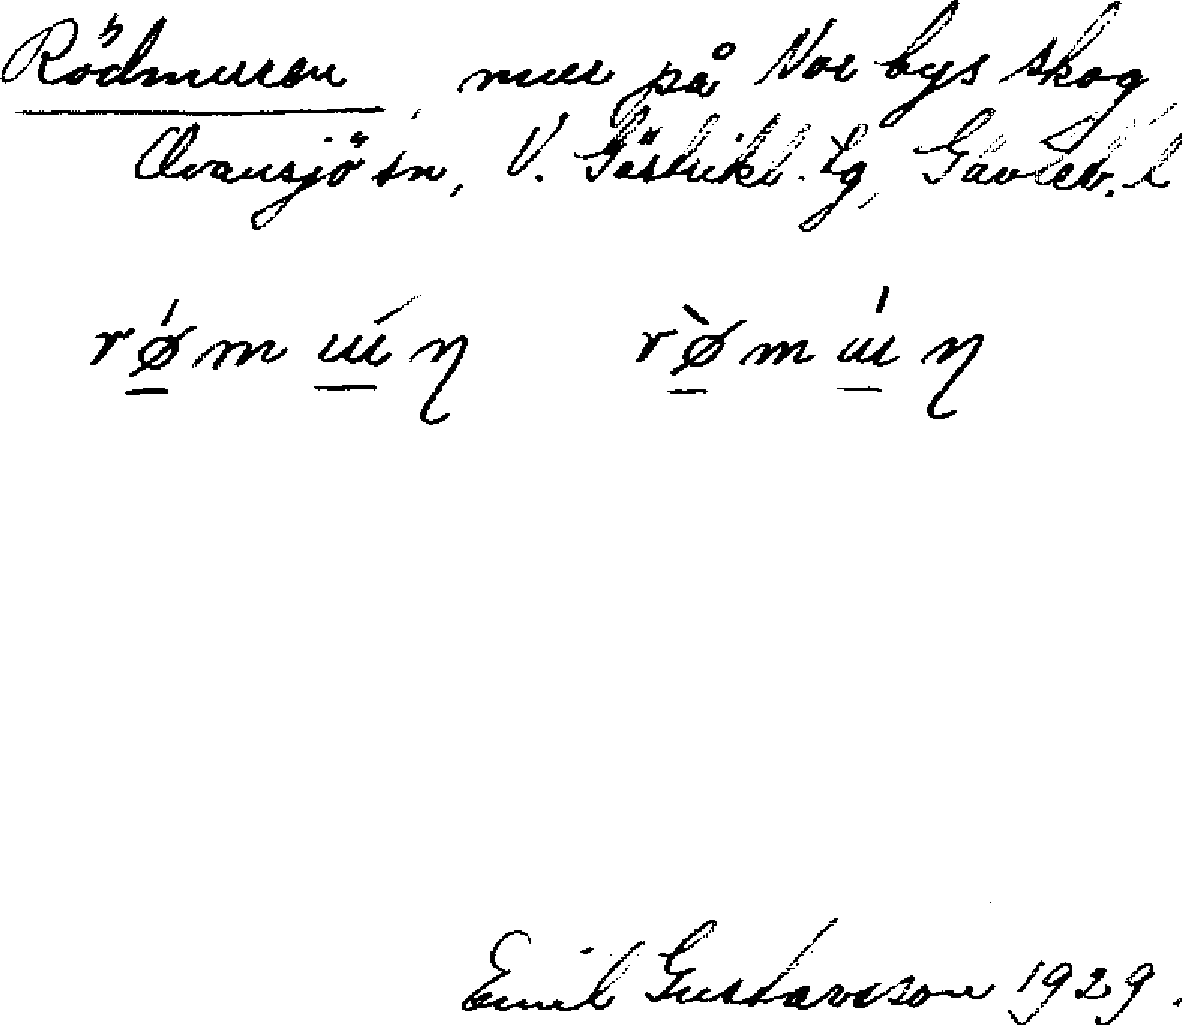 Rödmuren, mur på Nor bys skog
Ovansjö sn, V. Gästrikl. tg, Gävleb. l
rǿm úı́ŋ rø̀m úı́ŋ
Emil Gustavsson 1929.